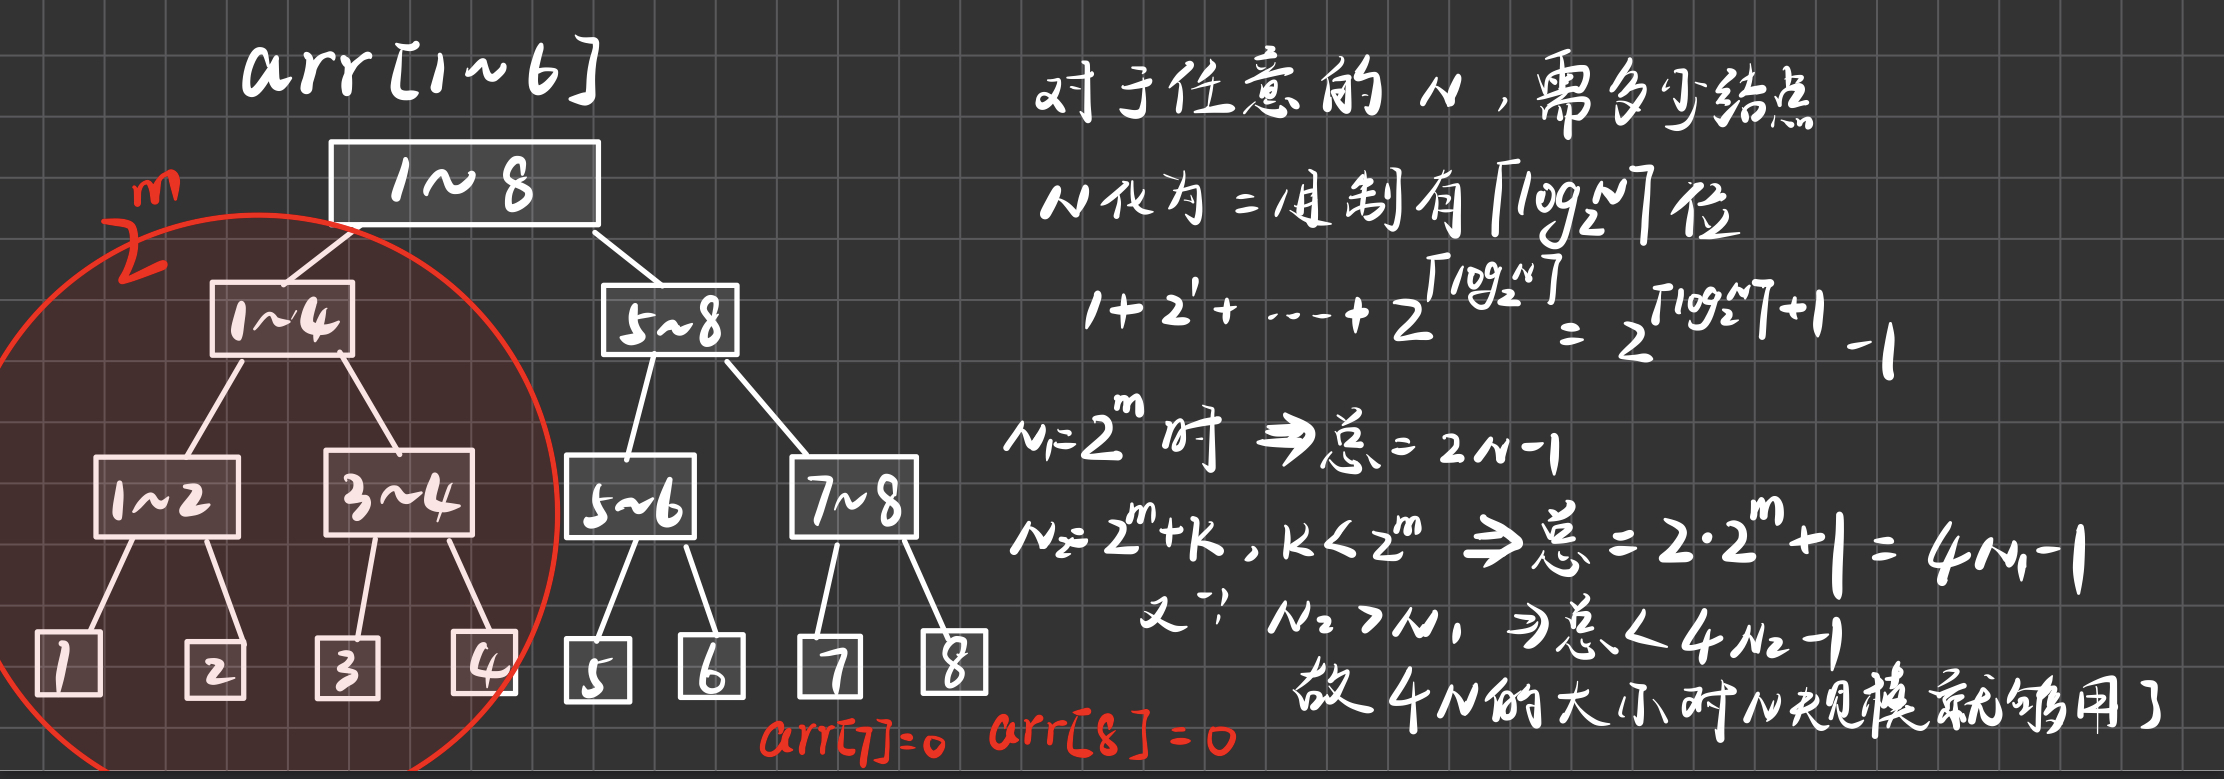 arr[1~6]
1~8
2^m
1~4
5~8
1~2
3~4
5~6
7~8
1
2
3
4
5
6
7
8
arr[7]=0
arr[8]=0
对于任意的 N，需多少结点
N化为二进制有⌈log₂N⌉位
1+2¹+...+2^⌈log₂N⌉ = 2^(⌈log₂N⌉+1) -1
N₁=2^m 时 ⇒ 总 = 2N-1
N₂=2^m+K, K<2^m ⇒ 总 = 2·2^m+1 = 4N₁-1
又∵ N₂>N₁ ⇒ 总 < 4N₂-1
故 4N的大小对N规模就够用了